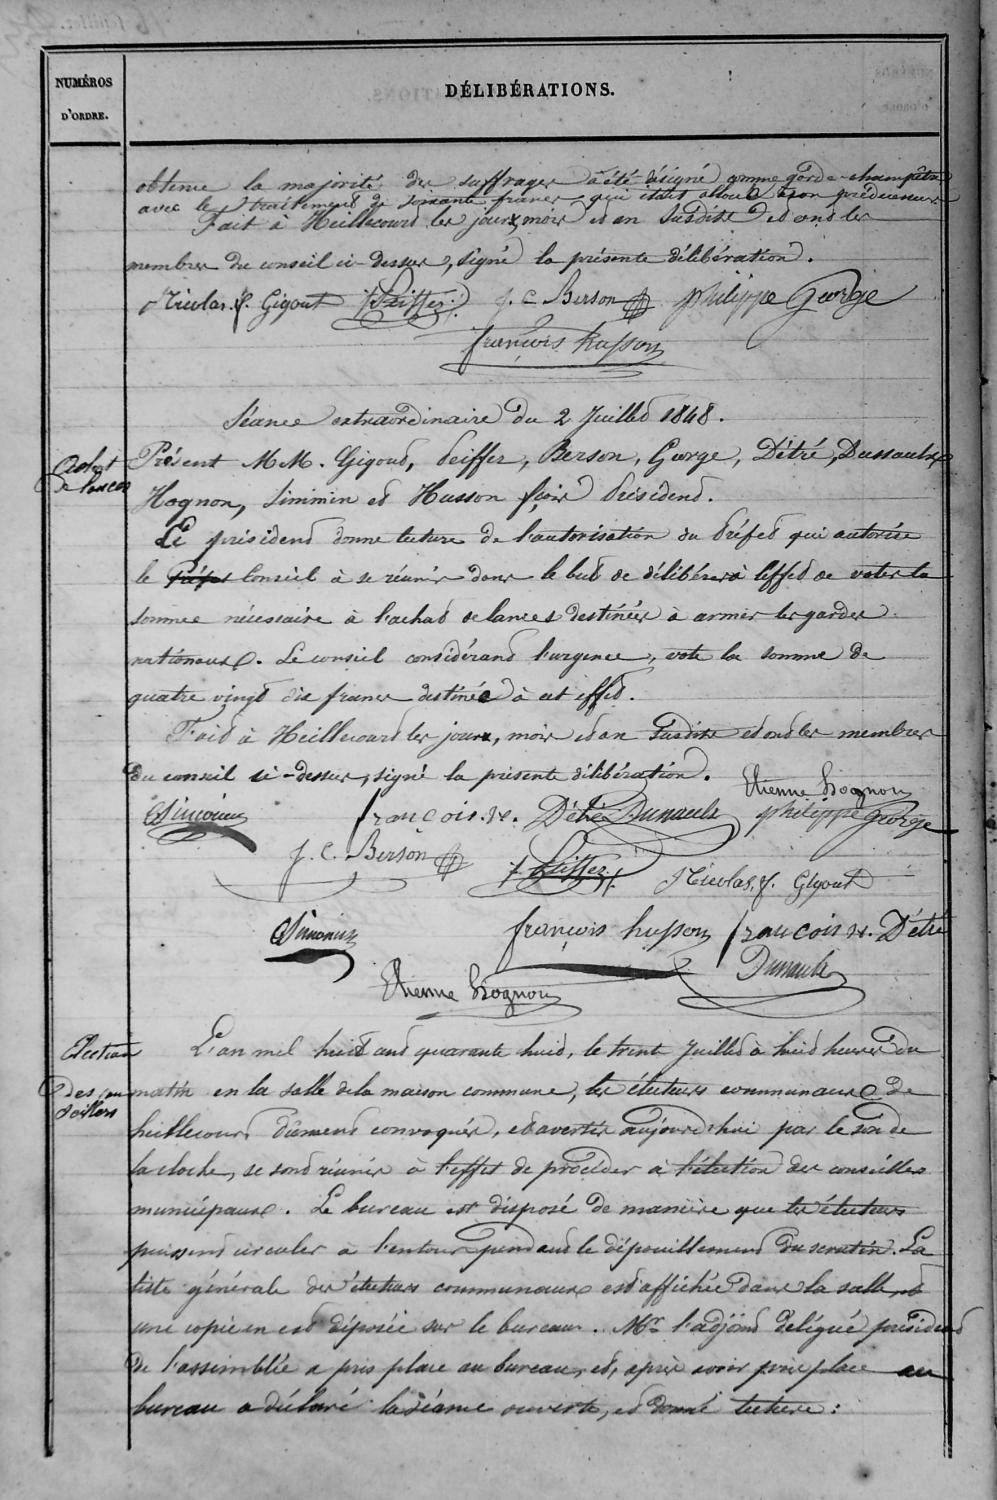 NUMÉROS
D'ORDRE.
DÉLIBÉRATIONS.
obtenu la majorité des suffrages a été désigné comme garde-champêtre
avec le traitement de soixante francs qui était alloué à son prédécesseur
Fait à Heillecourt les jours, mois et an susdits et ont les
membres du conseil ci-dessus, signé la présente délibération.
Nicolas. f. Gigout Peiffer J. C Berson philippe George
françois husson
Séance extraordinaire du 2 Juillet 1848.
Achat
de lances
Présent M M. Gigout, Peiffer, Berson, George, Détré, Dussaulx
Hognon, Simmin et Husson foir Président.
Le président donne lecture de l'autorisation du Préfet qui autorise
le Conseil à se réunir dans le but de délibérer à l'effet de voter la
somme nécessaire à l'achat de lances destinées à armer les gardes
nationaux. Le conseil considérant l'urgence, vote la somme de
quatre vingt dix francs destinée à cet effet.
Fait à Heillecourt les jours, mois et an susdits et ont les membres
du conseil ci-dessus, signé la présente délibération.
Etienne hognon
Simonin françois x. Détré Dussaulx philippe George
J. C. Berson Peiffer Nicolas. f. Gigout
Simonin françois husson françois x. Détré
Dussaulx
Etienne hognon
Election
des con
seillers
L'an mil huit cent quarante huit, le trent Juillet à huit heures du
matin en la salle de la maison commune, les électeurs communaux de
heillecourt dûment convoqués, et avertis aujourd'hui par le son de
la cloche, se sont réunis à l'effet de procéder à l'élection des conseillers
municipaux. Le bureau est disposé de manière que les électeurs
puissent circuler à l'entour pendant le dépouillement du scrutin. La
liste générale des électeurs communaux est affichée dans la salle et
une copie en est déposée sur le bureau. Mr. l'adjoint délégué président
de l'assemblée a pris place au bureau, et, après avoir pris place au
bureau a déclaré la séance ouverte, et donné lecture :